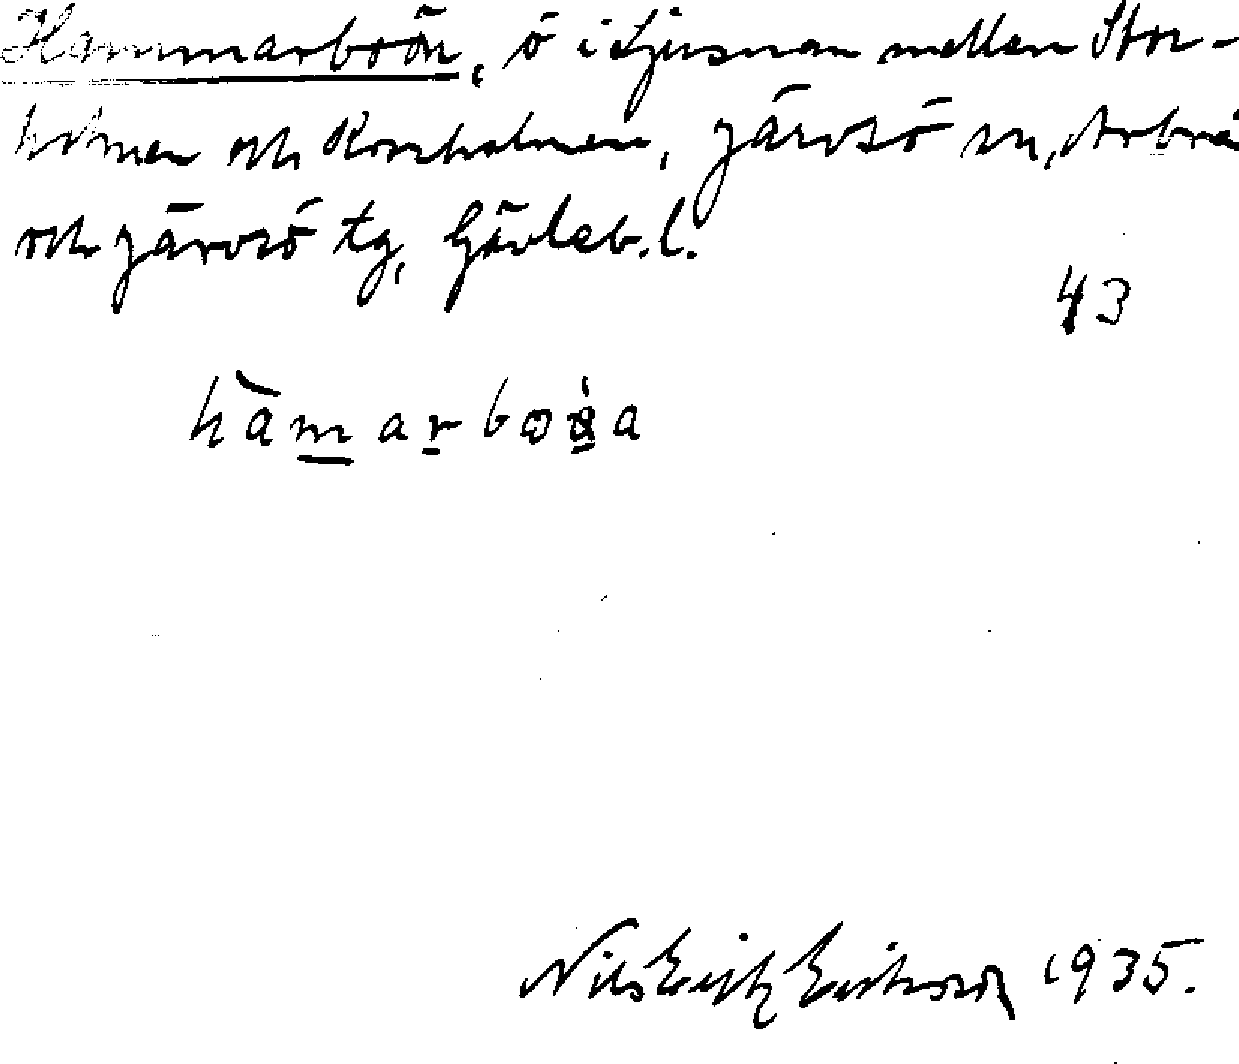 Hammarboön, ö i Ljusnan mellan Stor-
holmen och Kornholmen, Järvsö sn, Arbrå
och Järvsö tg, Gävleb. l.
43
hàmarboøa
Nils Erik Eriksson 1935.